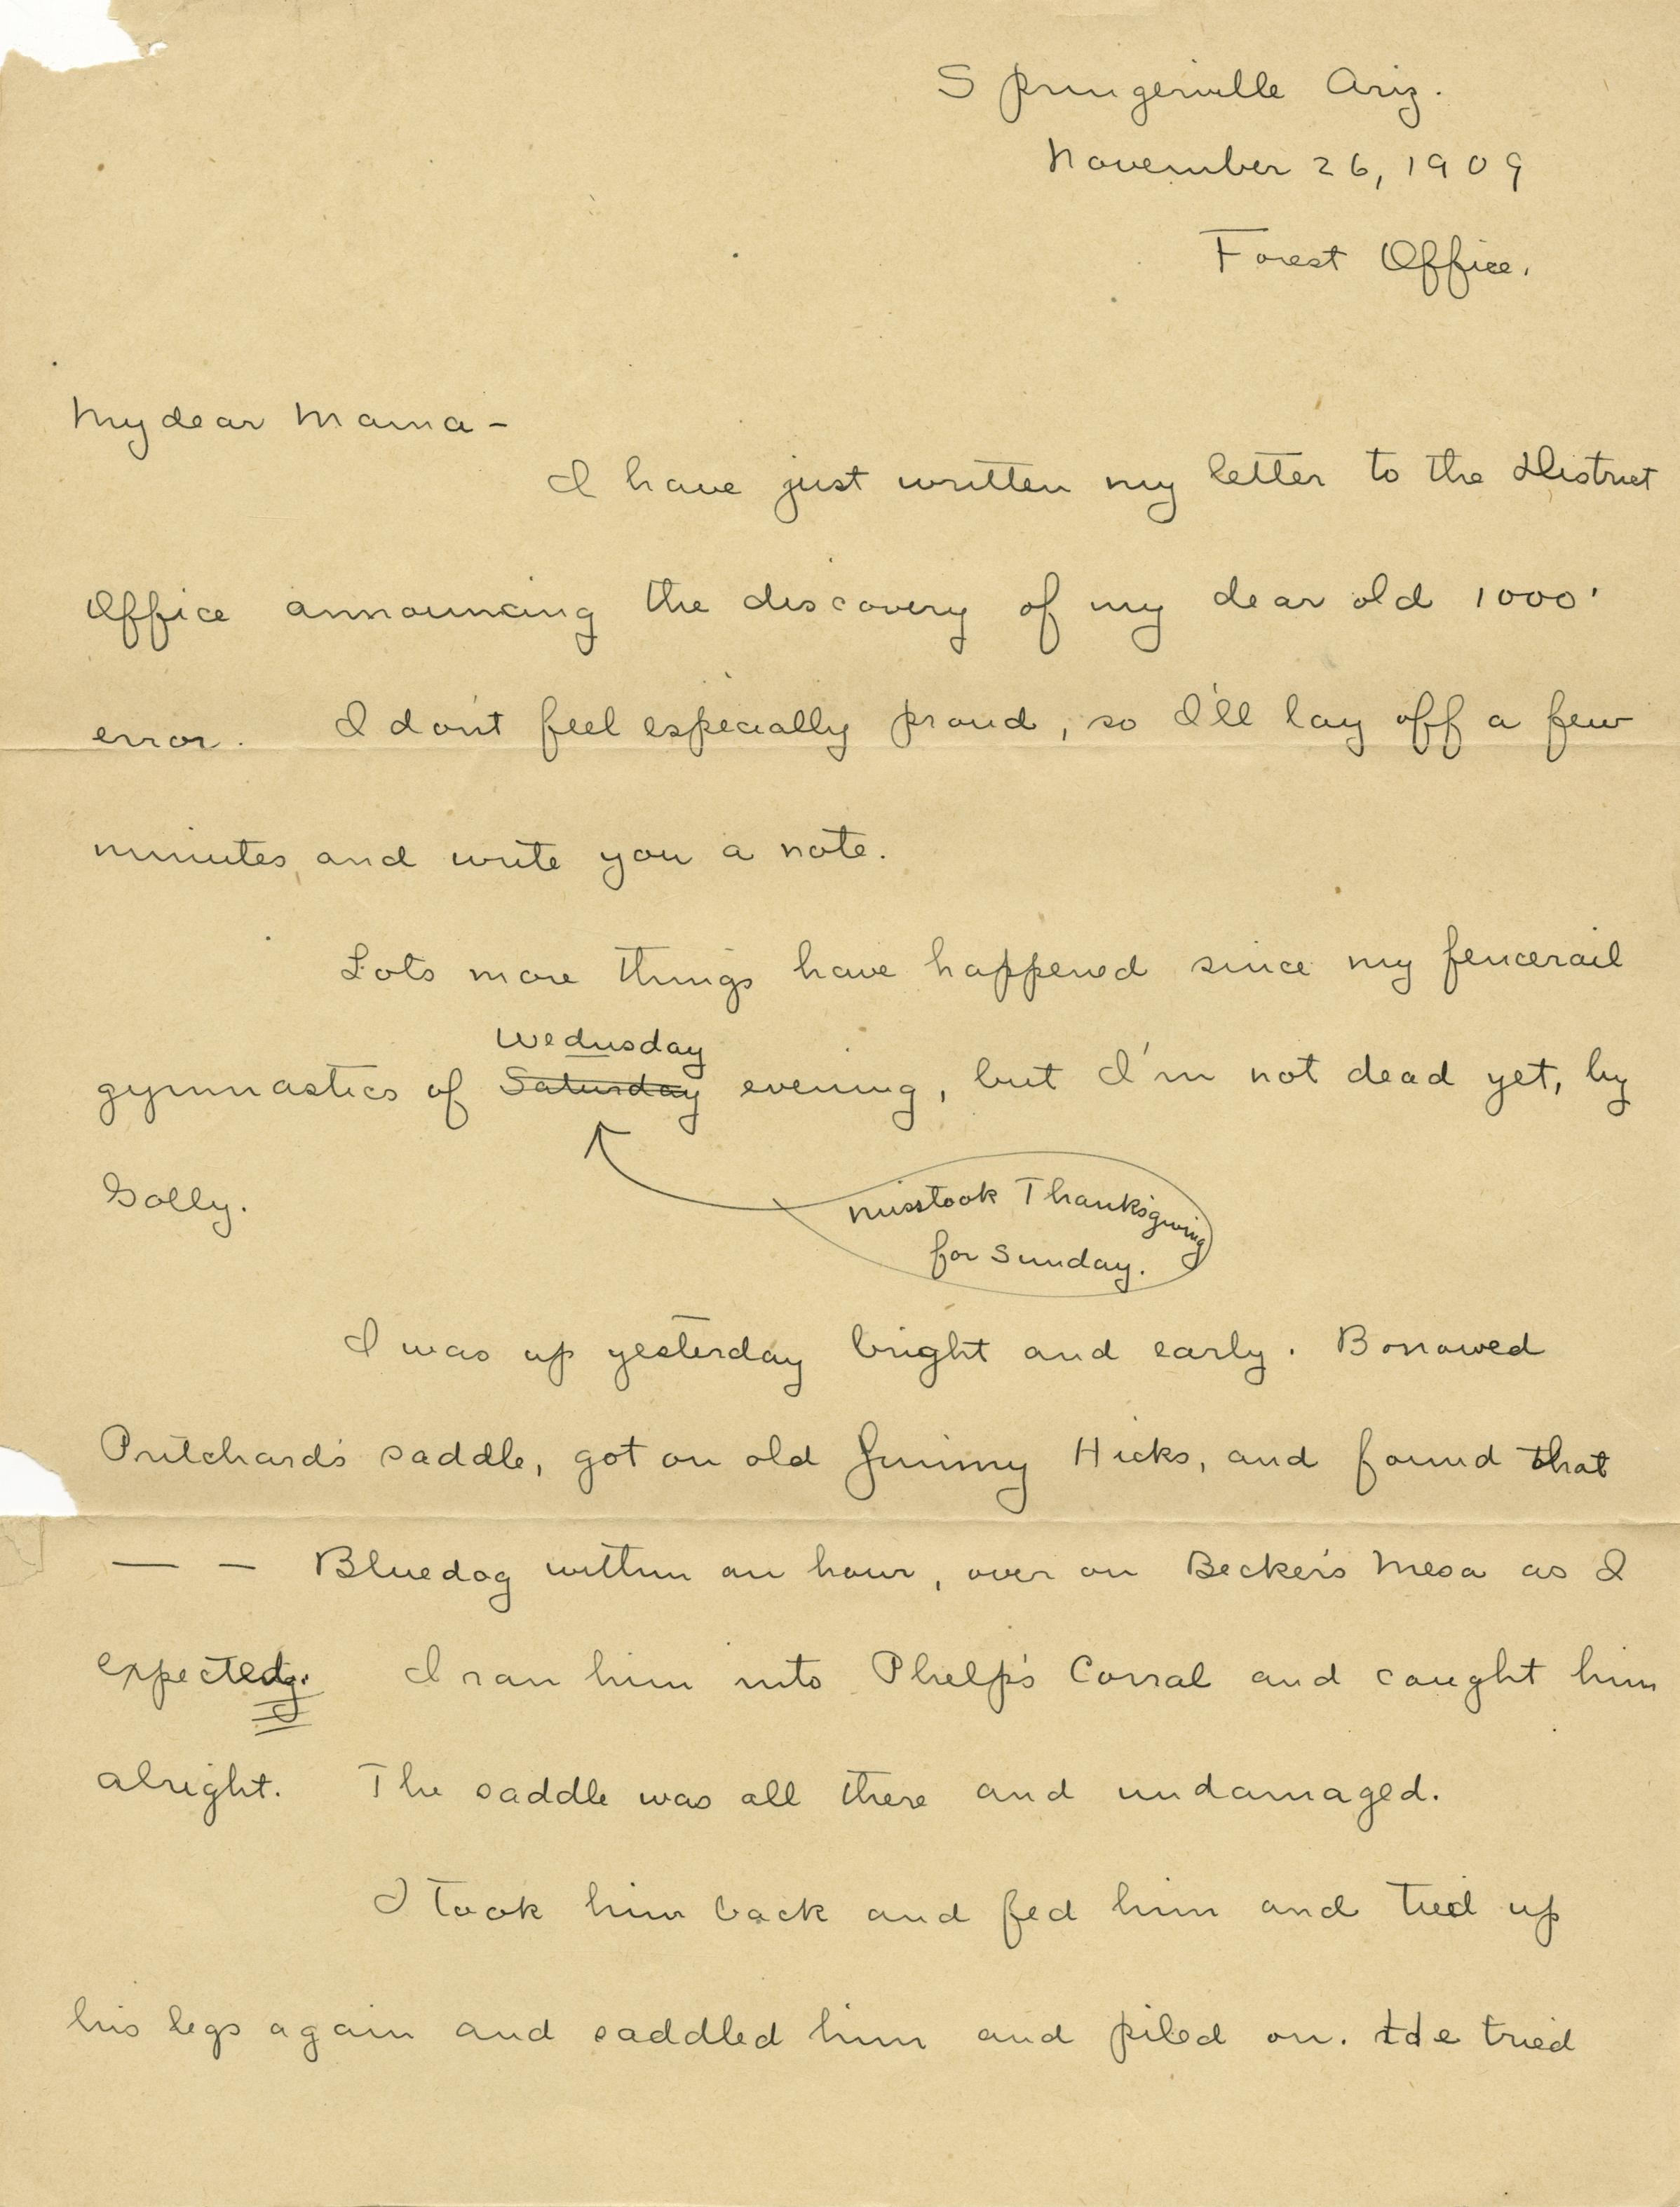 Springerville Ariz.
November 26, 1909
Forest Office.
My dear Mama -
I have just written my letter to the District
Office announcing the discovery of my dear old 1000'
error. I don't feel especially proud, so I'll lay off a few
minutes and write you a note.
Lots more things have happened since my fencerail
Wednsday
gymnastics of Saturday evening, but I'm not dead yet, by
Golly.
misstook Thanksgiving
for Sunday.
I was up yesterday bright and early. Borrowed
Pritchard's saddle, got on old Jimmy Hicks, and found that
— — Bluedog within an hour, over on Becker's Mesa as I
expected. I ran him into Phelp's Corral and caught him
alright. The saddle was all there and undamaged.
I took him back and fed him and tied up
his legs again and saddled him and piled on. He tried